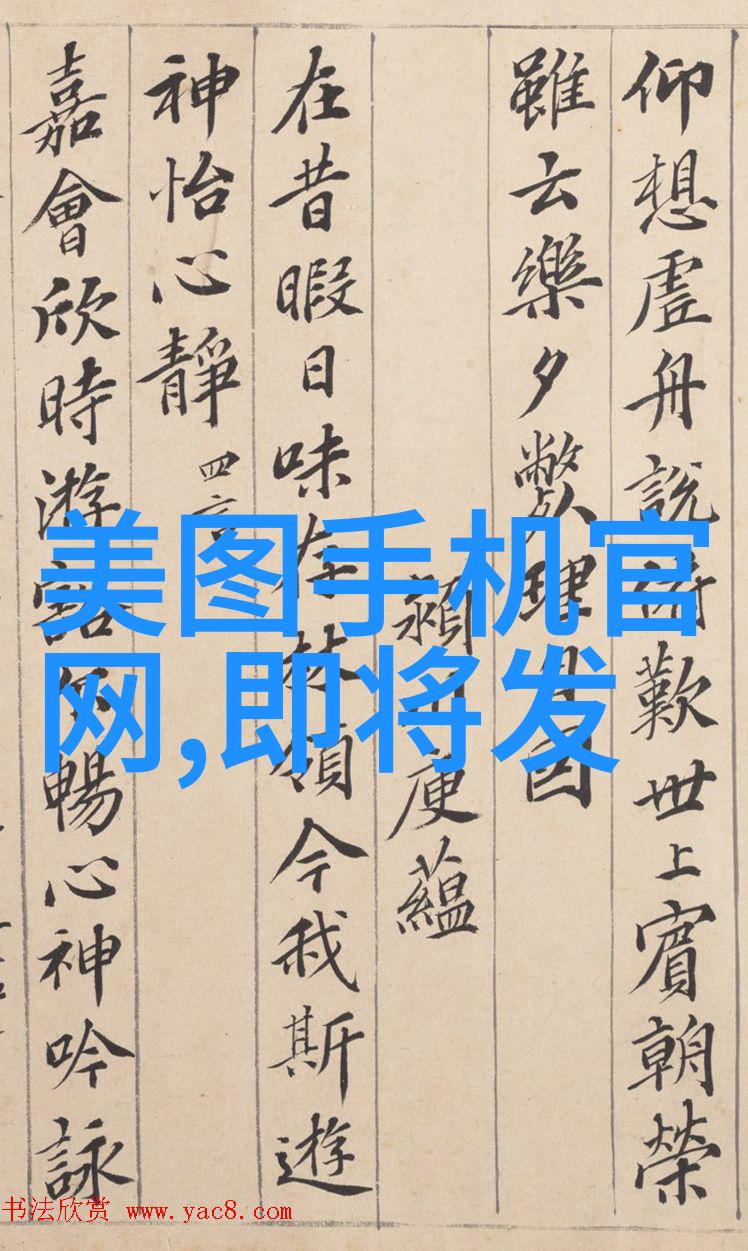 仰想虛舟說俯歎世上賓朝榮
雖云樂夕斃理自因
潁川庾蘊
在昔暇日味存林嶺今我斯遊
神怡心靜 四言
嘉會欣時游豁尔暢心神吟詠
美图手机官
网,即将发
书法欣赏 www.yac8.com